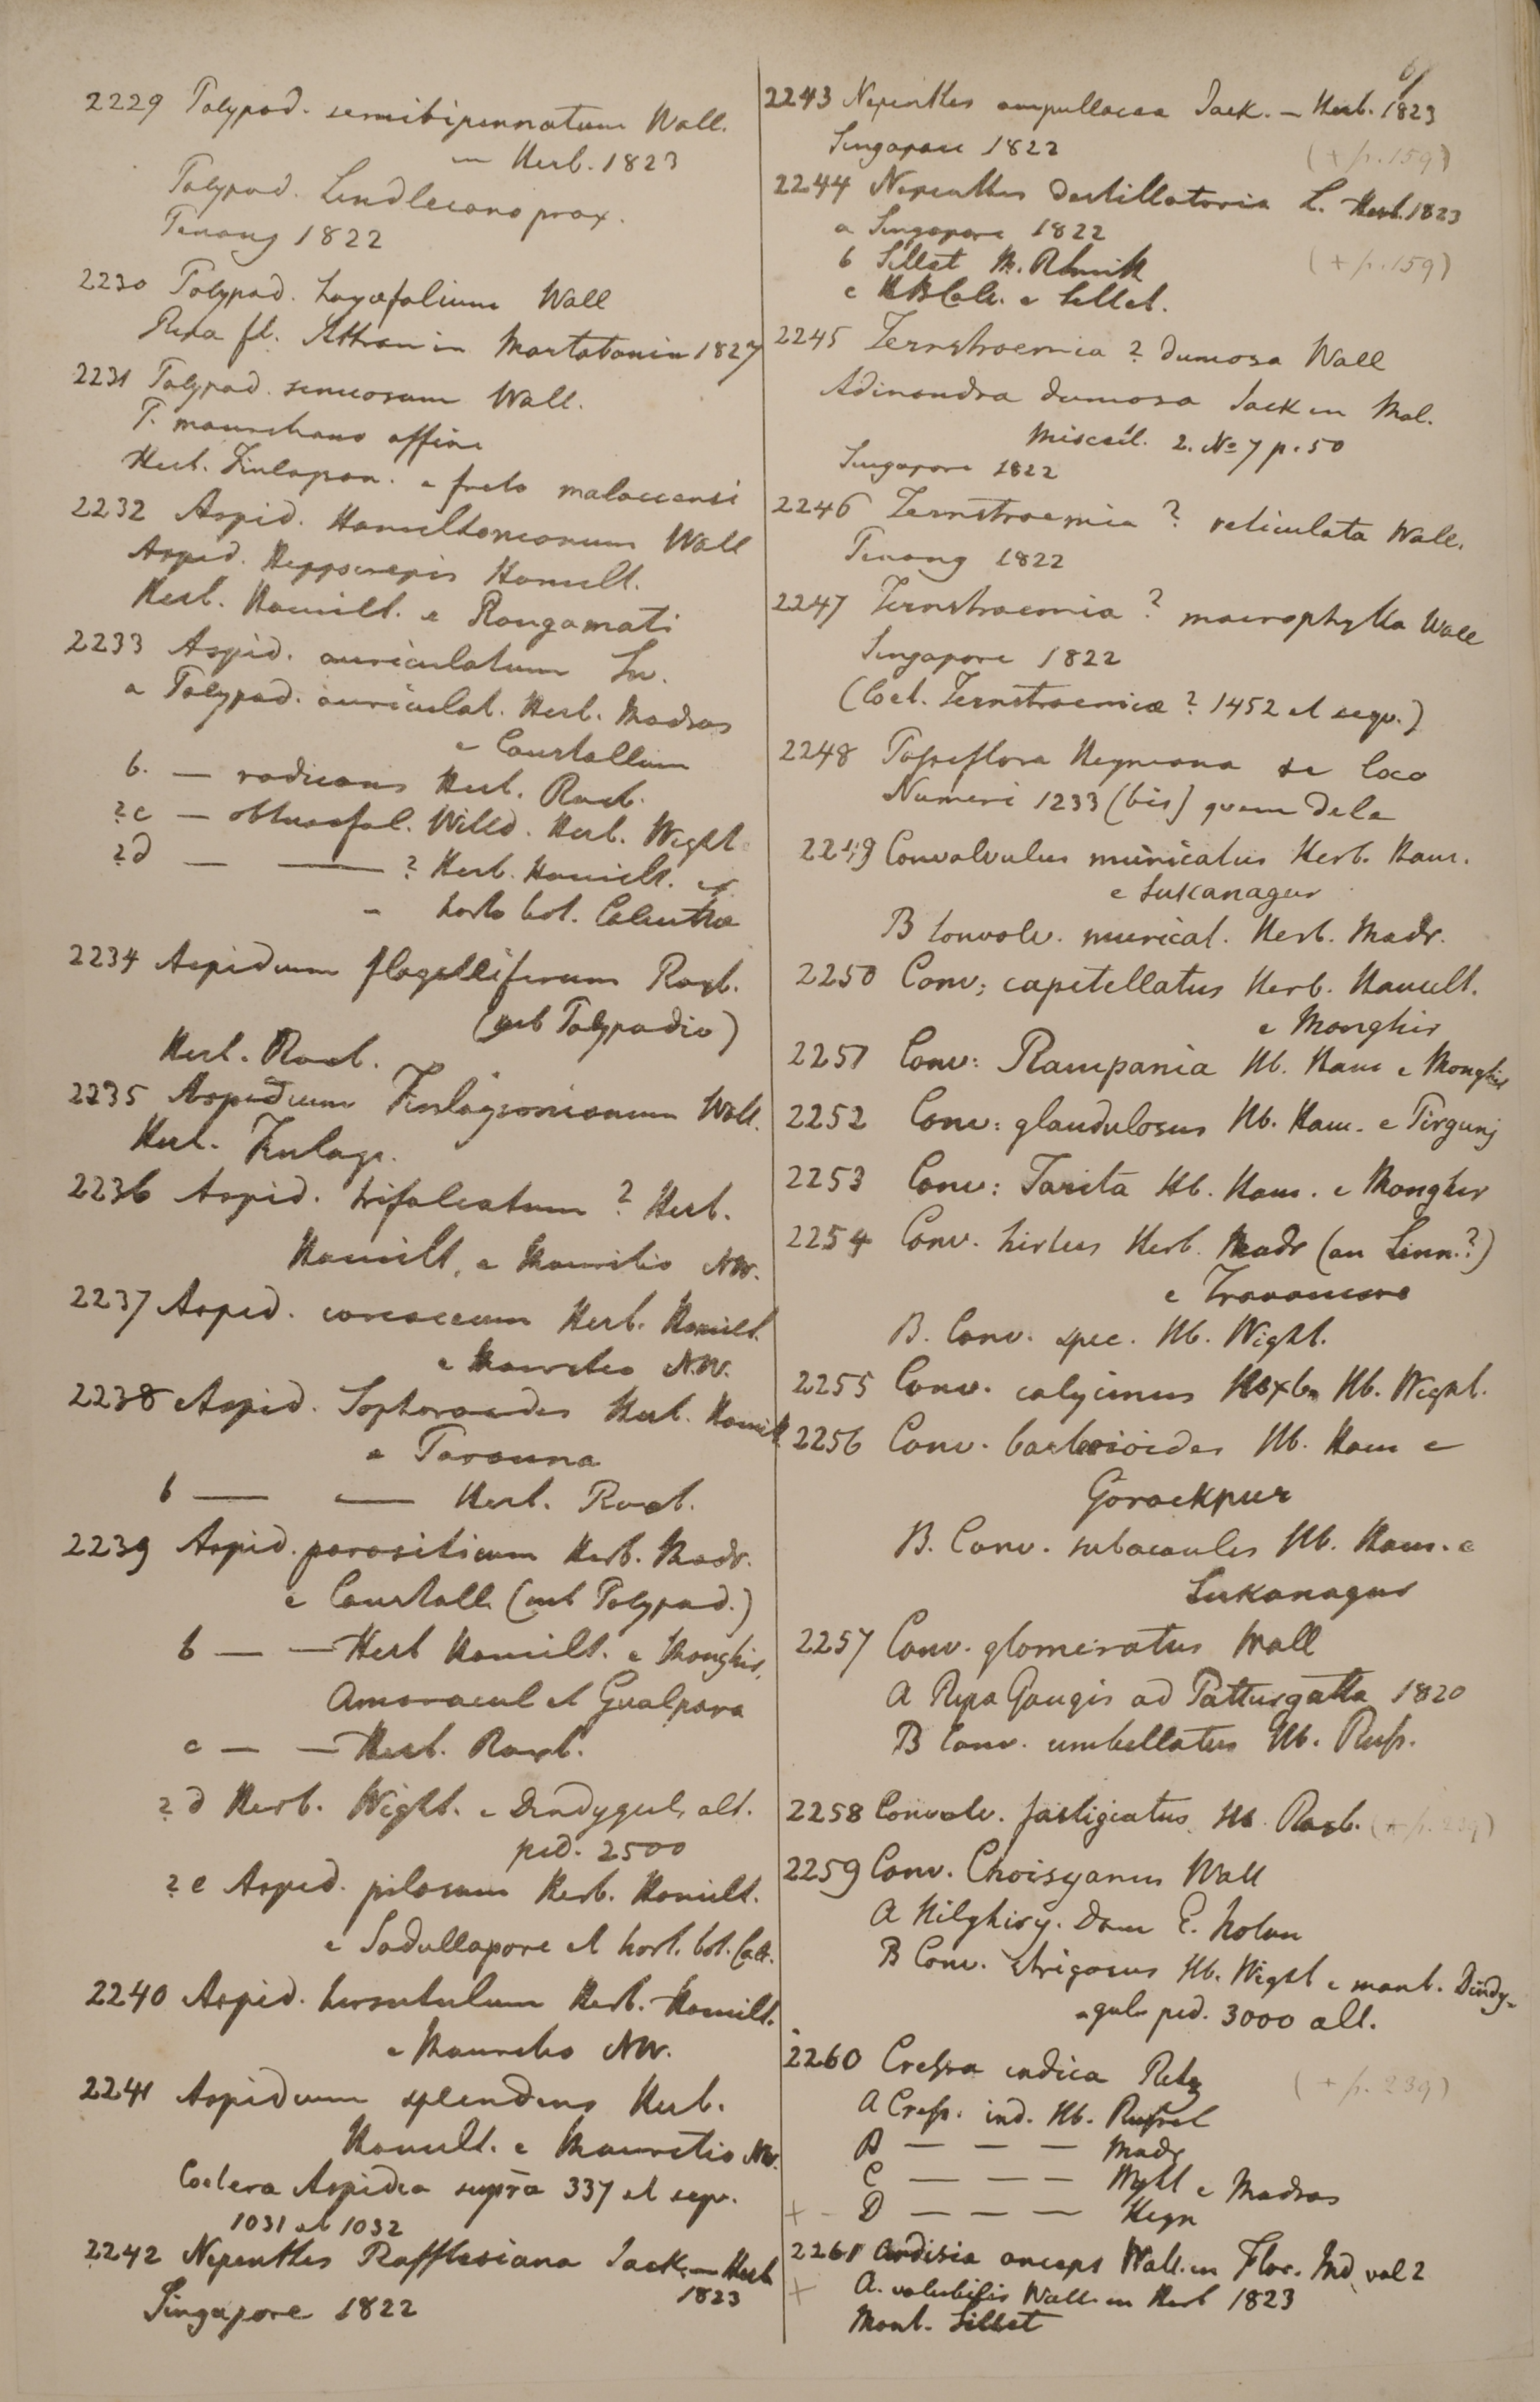 2229 Polypod. semibipennatum Wall.
— Herb. 1823
Polypod. Lindleano prox.
Penang 1822
2230 Polypod. Wall
Ripa fl. Attran in Martabania 1827
2231 Polypod. sinuosum Wall.
P. affine
Herb. Finlayson. e freto malaccensi
2232 Aspid. Hamiltonianum Wall
Aspid. Hamilt.
Herb. Hamilt. e Rangamati
2233 Aspid. auriculatum Sw.
a Polypod. auriculat. Herb. Madras
e Courtallum
b. — radicans Herb. Roxb.
?c — obtusifol. Willd. Herb. Wight
?d — — ? Herb. Hamilt. ex
horto bot. Calcuttae
2234 Aspidium flagelliferum Roxb.
(sub Polypodio)
Herb. Roxb.
2235 Aspidium Finlaysonianum Wall.
Herb. Finlays.
2236 Aspid. trifoliatum ? Herb.
Hamilt. e Mauritio NW.
2237 Aspid. coriaceum Herb. Hamilt.
e Mauritio NW.
2238 Aspid. Sophoroides Herb. Hamilt.
e
b — — Herb. Roxb.
2239 Aspid. parasiticum Herb. Madr.
e Courtall. (sub Polypod.)
b — — Herb Hamilt. e Monghir,
et Gualpara
c — — Herb. Roxb.
?d Herb. Wight. e Dindygul, alt.
ped. 2500
?e Aspid. pilosum Herb. Hamilt.
e Sadullapore et hort. bot. Calc.
2240 Aspid. hirsutulum Herb. Hamilt.
e Mauritio NW.
2241 Aspidium splendens Herb.
Hamilt. e Mauritio NW.
Coetera Aspidia supra 337 et seqv.
1031 et 1032
2242 Nepenthes Rafflesiana Jack. — Herb
1823
Singapore 1822
2243 Nepenthes ampullacea Jack. — Herb. 1823
Singapore 1822
(+ p. 159)
2244 Nepenthes destillatoria L. Herb. 1823
a Singapore 1822
b Sillet
(+ p. 159)
c HBCalc. e Sillet.
2245 Ternstroemia ? dumosa Wall
Adinandra dumosa Jack in Mal.
Miscell. 2. No 7 p. 50
Singapore 1822
2246 Ternstroemia ? reticulata Wall.
Penang 1822
2247 Ternstroemia ? macrophylla Wall
Singapore 1822
(Coet. Ternstroemiae ? 1452 et seqv.)
2248 Passiflora Heyneana se loco
Numeri 1233 (bis) quem dele
2249 Convolvulus muricatus Herb. Ham.
e Sukanagur
B Convolv. muricat. Herb. Madr.
2250 Conv; capitellatus Herb. Hamilt.
e Monghir
2251 Conv: Rampania Hb. Ham e Monghir
2252 Conv: glandulosus Hb. Ham. e Pirgunj
2253 Conv: Tarita Hb. Ham. e Monghir
2254 Conv. hirtus Herb. Madr (an Linn.?)
e Travancore
B. Conv. spec. Hb. Wight.
2255 Conv. calycinus Roxb. Hb. Wight.
2256 Conv. barlerioides Hb. Ham e
Gorackpur
B. Conv. subacaules Hb. Ham. e
Sukanagur
2257 Conv. glomeratus Wall
A Ripa Gangis ad Patturgatta 1820
B Conv. umbellatus Hb. Russ.
2258 Convolv. fastigiatus Hb. Roxb. (+ p. 239)
2259 Conv. Choisyanus Wall
A Nilghiry. Dom E. Nolan
B Conv. strigosus Hb. Wight e mont. Dindy-
-gul ped. 3000 alt.
2260 Cressa indica Retz
(+ p. 239)
A Cress. ind. Hb. Russel
B — — — Madr
C — — — Wight e Madras
+ - D — — — Heyn
2261 Ardisia anceps Wall. in Flor. Ind vol 2
+ A. volubilis Wall. in Herb 1823
Mont. Sillet